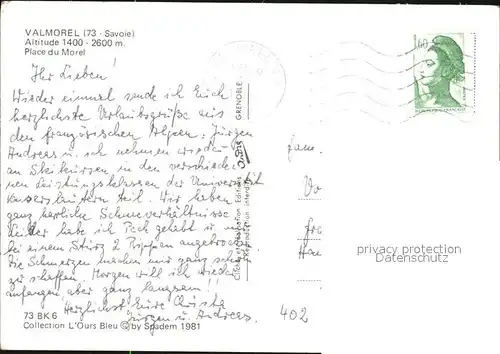 VALMOREL (73 - Savoie)
Altitude 1400 - 2600 m.
Place du Morel
Ihr Lieben!
Wieder einmal sende ich Euch
herzlichste Urlaubsgrüße aus
den französischen Alpen. Jürgen
Andreas u. ich nehmen wieder
an Skikursen in den verschiede-
nen Leistungsklassen der Universität
Kaiserslautern teil. Wir haben
ganz herrliche Schneeverhältnisse
Leider habe ich Pech gehabt u. mir
bei einem Sturz 2 Rippen angebrochen
Die Schmerzen machen mir ganz schön
zu schaffen. Morgen will ich wieder
anfangen aber ganz langsam!
Herzlichst Eure Christa
Jürgen u. Andreas.
73 BK 6
Collection L'Ours Bleu © by Spadem 1981
GRENOBLE
Reproduction interdite
1,60
Fam.
402
privacy protection
Datenschutz